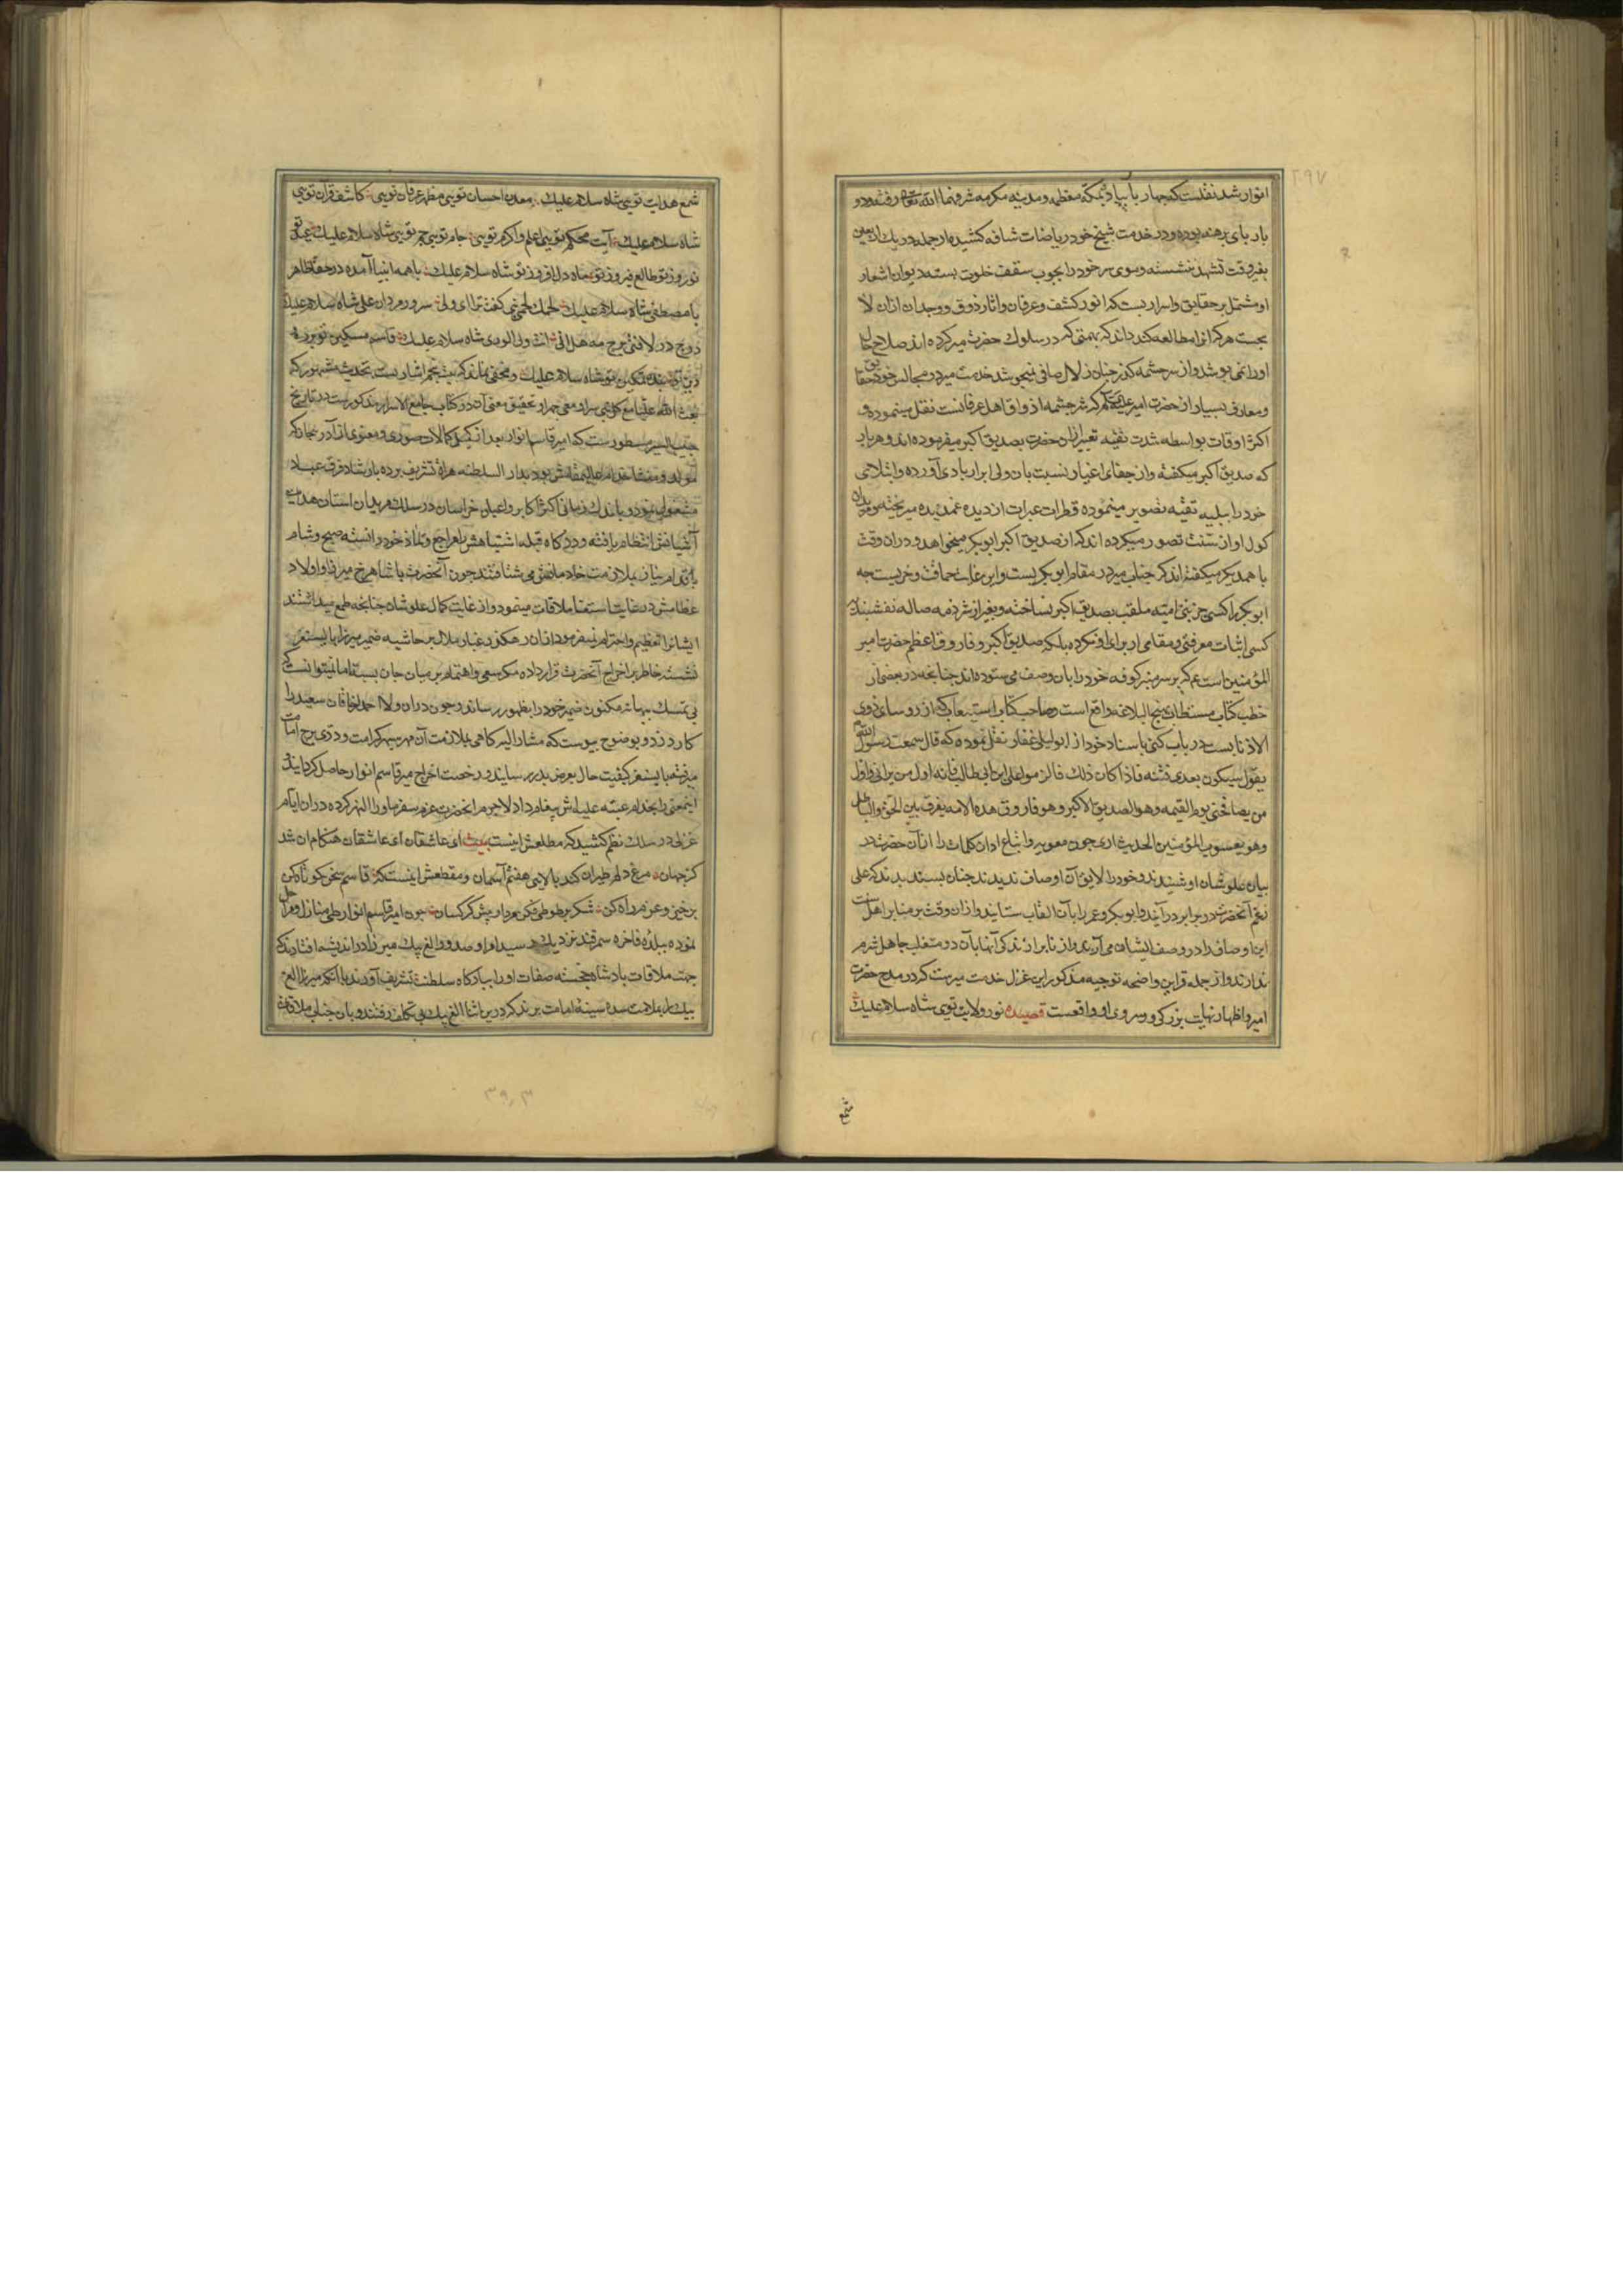 ۲۹۷
انوار شد نقلست که چهار بار پیاده بمکه معظمه و مدینه مکرمه شرفهما الله تعالی رفته و دو
بار پای برهنه بوده و در خدمت شیخ خود ریاضات شاقه کشیده از جمله در یک اربعین
بغیر وقت تشهد ننشسته و موی سر خود را بچوب سقف خلوت بسته دیوان اشعار
او مشتمل بر حقایق و اسراریست که انور کشف و عرفان و اثار ذوق و وجدان ازان لا
یحست هر که انرا مطالعه کند داند که بهمتی که در سلوک حضرت میر کرده اند صلاح حال
او را نمی پوشد و از سر چشمه کدر چنان زلال صافی نمیجوشد خدمت میر در مجالس خود حقایق
و معارف بسیار از حضرت امیر که سر چشمه اذواق اهل عرفانست نقل مینموده و
اکثر اوقات بواسطه شدت تقیه تعبیر ازان حضرت بصدیق اکبر میفرموده اند و هر بار
که صدیق اکبر میکفته و از جفای اغیار نسبت بان ولی ابرار یاد می آورده و ابتلای
خود را ببلیه تقیه تصویر مینموده قطرات عبرات از دیده غمدیده میریخته و مریدان
کول او از سنت تصور میکرده اند که از صدیق اکبر ابوبکر میخواهد و دران وقت
با همدیکر میکفته اند که جناب میر در مقام ابو بکریست و این غایت حماقت و خریست چه
ابوبکر را کسی جز بنی امیه ملقب بصدیق اکبر نساخته و بغیر از شرذمه ضاله نقشبندیه
کسی اثبات معرفتی و مقامی از برای او نکرده بلکه صدیق اکبر و فاروق اعظم حضرت امیر
المؤمنین است عم که بر سر منبر کوفه خود را بان وصف می ستوده اند چنانچه در بعضی از
خطب کتاب مستطاب نهج البلاغه واقع است و صاحب کتاب استیعاب که از روسای ذوی
الاذنابست در باب کنی باسناد خود از ابولیلی غفار نقل نموده که قال سمعت رسول الله
یقول سیکون بعدی فتنه فاذا کان ذلک فالزموا علی ابن ابی طالب فانه اول من یرانی و اول
من یصافحنی یوم القیمه و هو الصدیق الاکبر و هو فاروق هذه الامه یفرق بین الحق و الباطل
و هو یعسوب المؤمنین الحدیث اری چون معویه و اتباع او ان کلمات را ازان حضرت در
بیان علو شان او شنیدند و خود را لایق آن اوصاف ندیدند چنان پسندیدند که علی
رغم آنحضرت در برابر درآیند و ابوبکر و عمر را بآن القاب ستایند و ازان وقت بر منابر اهل سنت
این اوصاف را در وصف ایشان می آرند و از نابرازندکی آنها بآن دو متغلب جاهل شرم
ندارند و از جمله قراین واضحه توجیه مذکور این غزل خدمت میرست که در مدح حضرت
امیر و اظهار نهایت بزرکی و سروی او واقعست قصیده نور ولایت توی شاه سلام علیک
شمع
شمع هدایت تویی شاه سلام علیک معدن احسان تویی مظهر عرفان تویی کاشف قرآن تویی
شاه سلام علیک آیت محکم تویی اعلم و اکرم تویی جام تویی جم تویی شاه سلام علیک
نوروز تو طالع فیروز تو ماه دل افروز تو شاه سلام علیک با همه انبیا آمده در خفا ظاهر
با مصطفی شاه سلام علیک لحمک لحمی نبی کفت ترا ای ولی سرور مردان علی شاه سلام علیک
درج در لافتی برج مه هل اتی انت ولی الوری شاه سلام علیک قاسم مسکین تو
تو شاه سلام علیک و مخفی نماند که بیت پنجم اشارتست بحدیث مشهور که
بعث الله علیا مع کل نبی سرا و معی جهرا و تحقیق معنی آن در کتاب جامع الاسرار مذکورست در تاریخ
حبیب السیر مسطورست که امیر قاسم انوار بعد از تکمیل کمالات صوری و معنوی از آذربیجان که
مولد و منشا خدام عالیمقامش بود بدار السلطنه هراة تشریف برده بارشاد فرق عباد
مشغولی نمود و باندک زمانی اکثر اکابر و اعیان خراسان در سلک مریدان استان هدایت
آشیانش انتظام یافته و درکاه قبله اشتباهش را مراجع و ملاذ خود دانسته صبح و شام
باقدام نیاز بملازمت خدام می شتافتند چون آنحضرت با شاهرخ میرزا و اولاد
عظامش در غایت استغنا ملاقات مینمود و از غایت کمال علو شان چنانچه طمع میداشتند
ایشانرا تعظیم و احترام نمیفرمود ازان رهکذر غبار ملال بر حاشیه ضمیر میرزا بایسنغر
نشسته خاطر بر اخراج آنحضرت قرار داده کمر سعی و اهتمام بر میان جان بسته اما نمیتوانست که
بی تمسک بهانه مکنون ضمیر خود را بظهور رساند و چون دران ولا احمد لر خاقان سعید را
کارد زد و بوضوح پیوست که مشار الیه کاهی بملازمت آن مهر سپهر کرامت و دری برج امامت
میرفته بایسنغر کیفیت حال بعرض پدر رسانید و رخصت اخراج میر قاسم انوار حاصل کردانید
اینمعنی را بخدام عتبه علیه اش پیغام داد لاجرم انحضرت عزم سفر ماورا النهر کرده دران ایام
غزلی در سلک نظم کشید که مطلعش اینست بیت ای عاشقان ای عاشقان هنکام آن شد
کز جهان مرغ دلم طیران کند بالای هفتم آسمان و مقطعش اینست که قاسم سخن کوتاه کن
برخیز و عزم راه کن شکر بر طوطی فکن مردار پیش کرکسان چون امیر قاسم انوار طی منازل و مراحل
نموده ببلده فاخره سمرقند نزدیک رسید امرا و صدور الغ بیک میرزا در اندیشه افتادند که
جهت ملاقات پادشاه خجسته صفات او را ببارکاه سلطنت تشریف آورند با آنکه میرزا الغ
بیک را بملازمت سده سنیه امامت برند که در این اثنا الغ بیک بی تکلف رفتند و بان جناب ملاقات